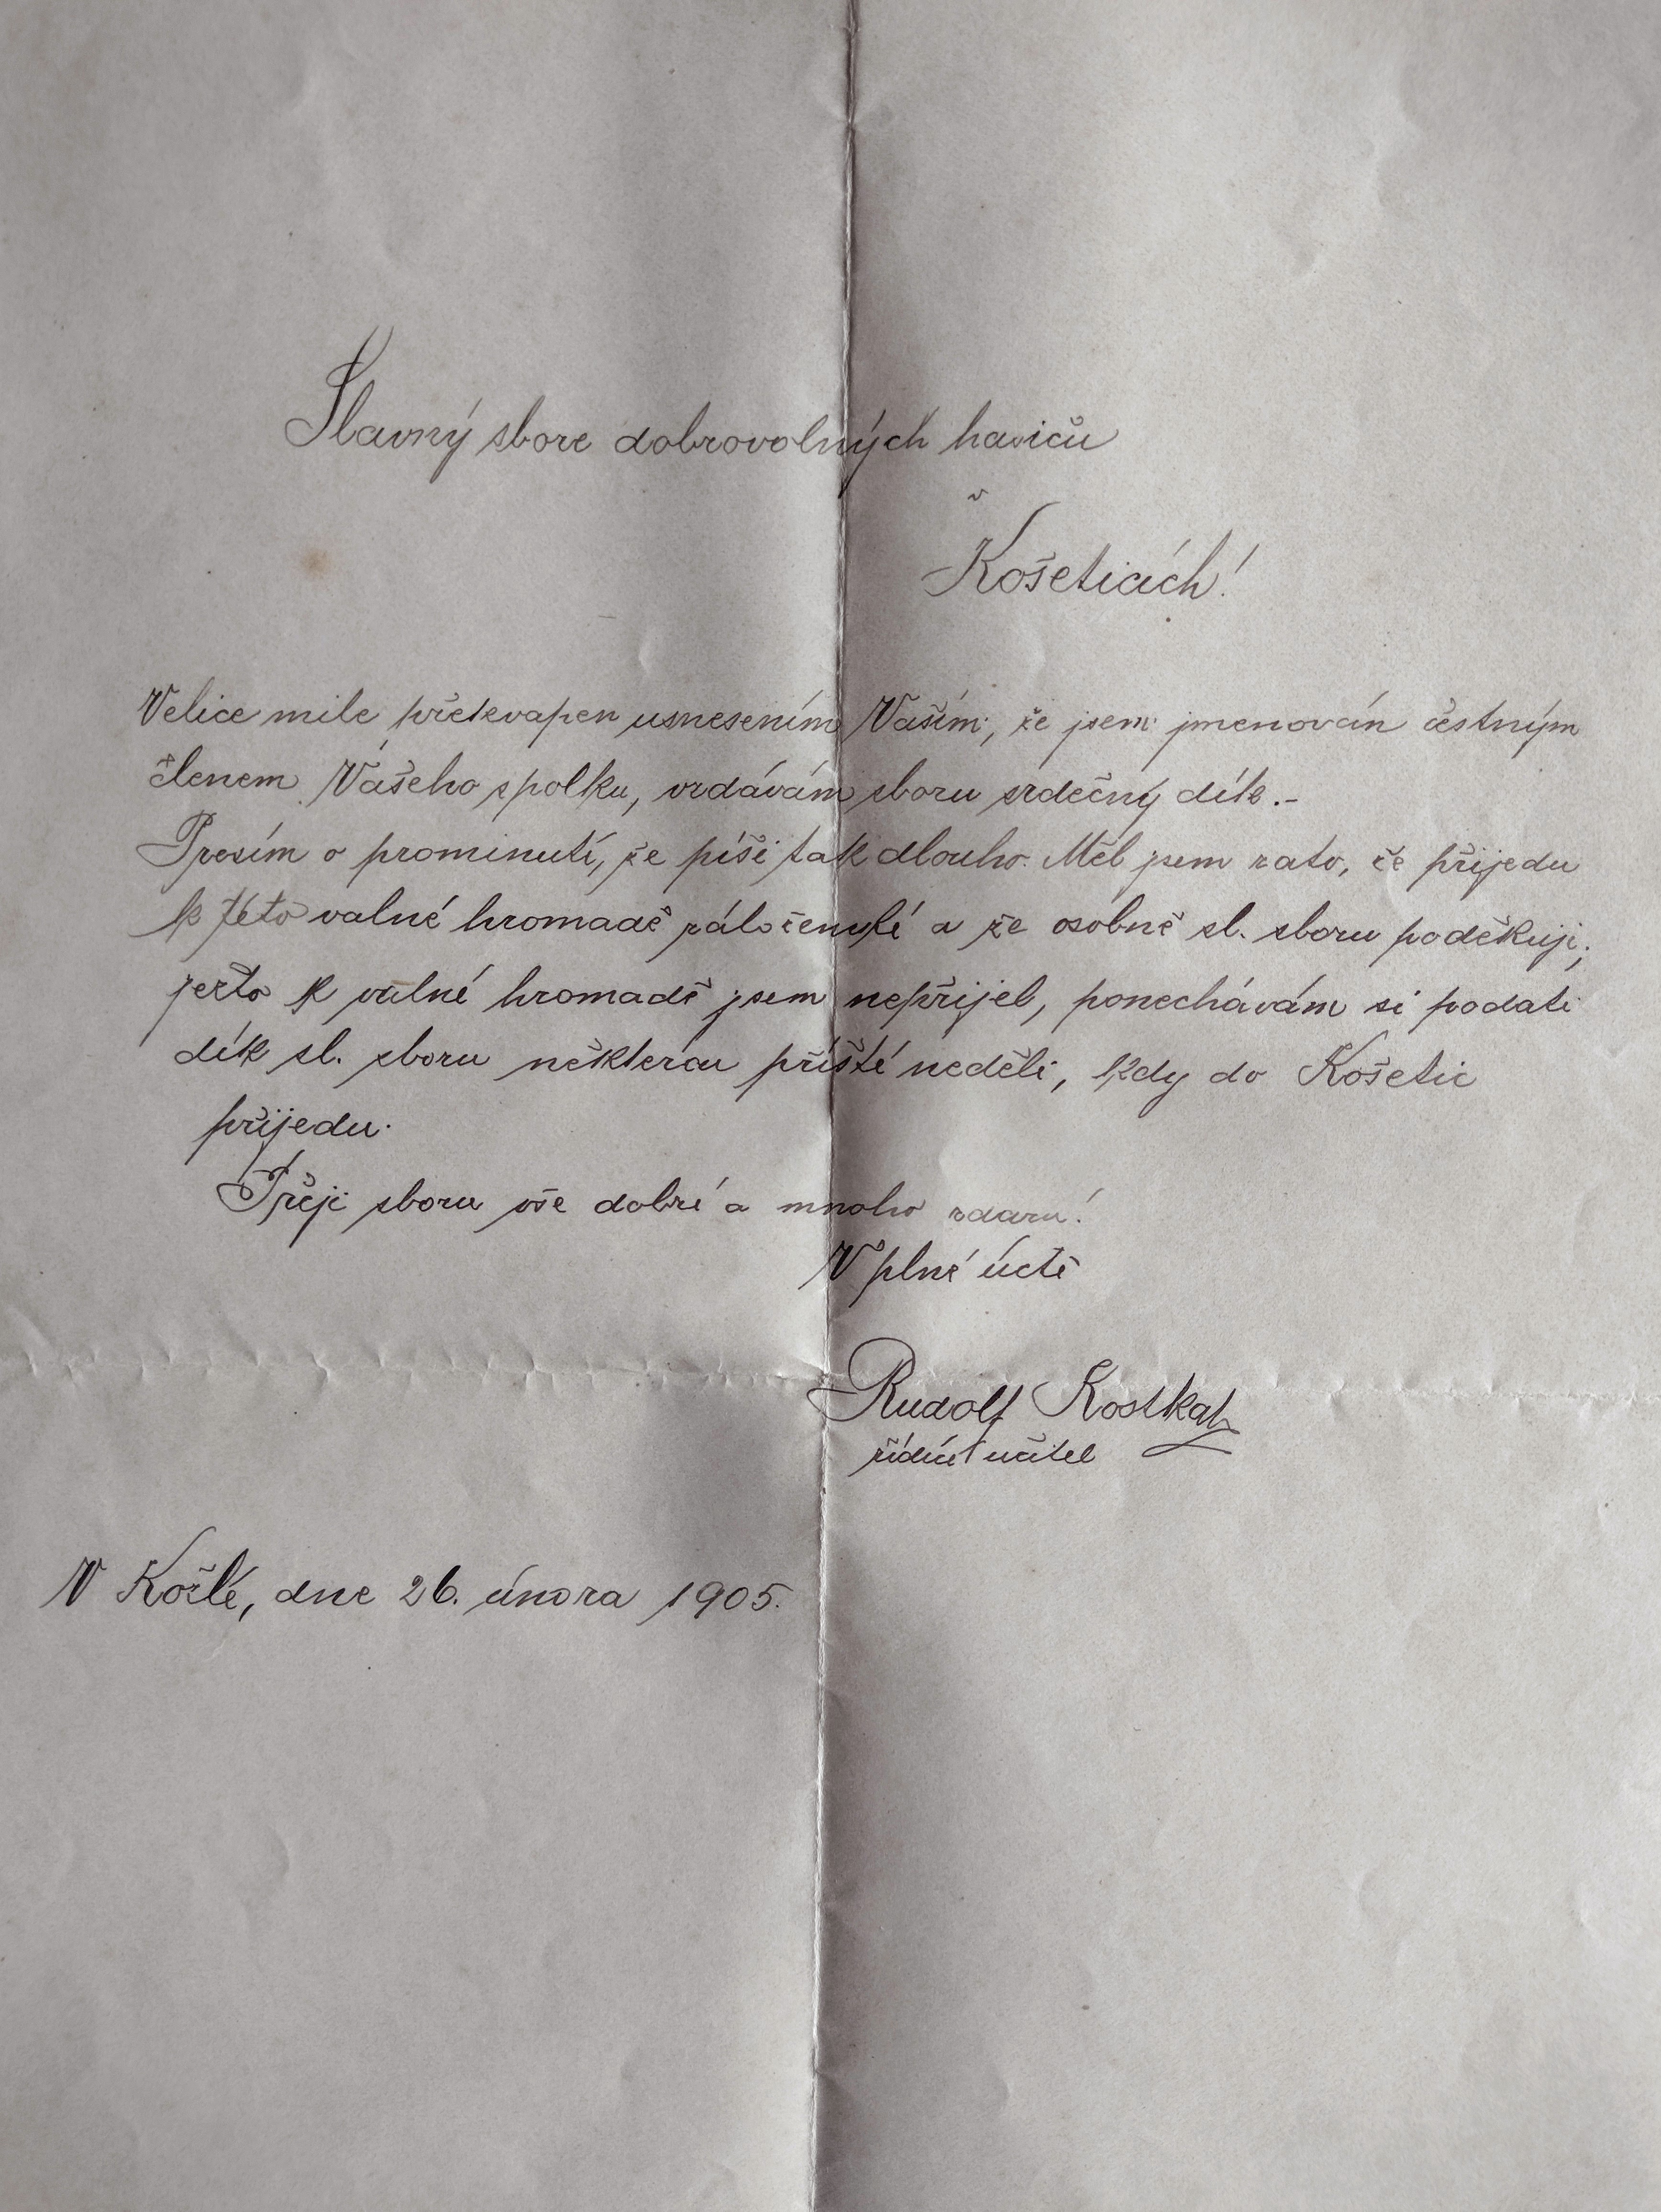 Slavný sbore dobrovolných hasičů
v
Košeticích!
Velice mile překvapen usnesením Vaším, že jsem jmenován čestným
členem Vašeho spolku, vzdávám sboru srdečný dík.-
Prosím o prominutí, že píši tak dlouho. Měl jsem zato, že přijedu
k této valné hromadě záloženské a že osobně sl. sboru poděkuji;
ježto k valné hromadě jsem nepřijel, ponechávám si podati
dík sl. sboru některou příští neděli, kdy do Košetic
přijedu.
Přeji sboru vše dobré a mnoho zdaru!
V plné úctě
Rudolf
řídící učitel
V Kožlí, dne 26. února 1905.